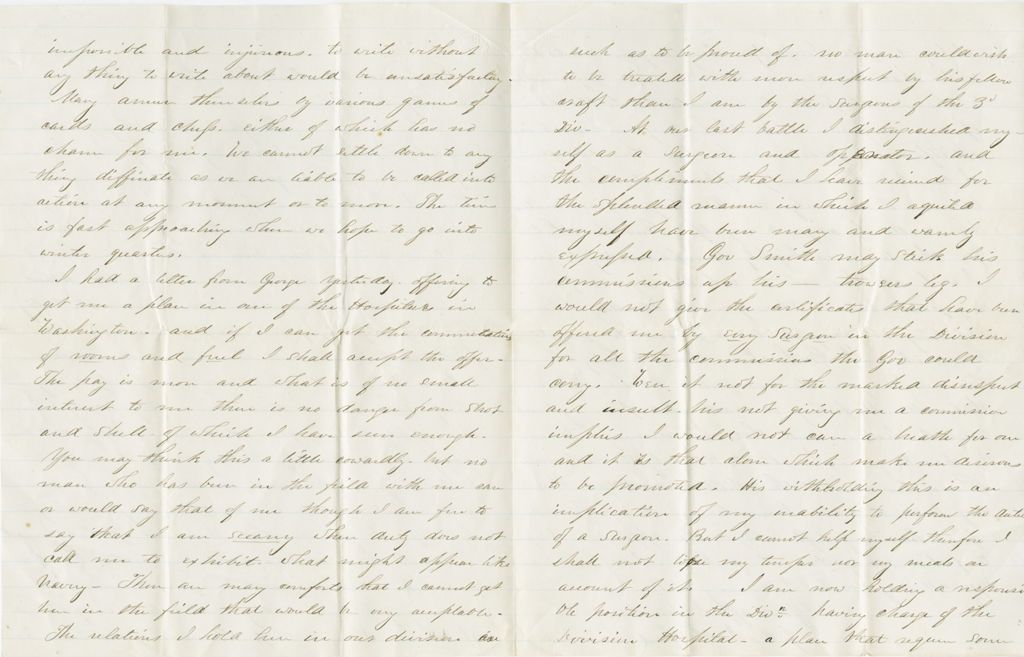 impossible and injurious. to write without
any thing to write about would be unsatisfactory.
Many amuse themselves by various games of
cards and chefs. either of which has no
charm for me. We cannot settle down to any
thing diffinate as we are liable to be called into
action at any moment or to move. The time
is fast approaching when we hope to go into
winter quarters.
I had a letter from George yesterday. offering to
get me a place in one of the Hospitals in
Washington. and if I can get the commutation
of rooms and fuel I shall accept the offer-
The pay is more and what is of no small
interest to me there is no danger from shot
and shell- of which I have seen enough.
You may think this a little cowardly. but no
man who has been in the field with me can
or would say that of me though I am free to
say that I am scary when duty does not
call me to exhibit what might appear like
bravery- There are many comforts that I cannot get
here in the field that would be very acceptable-
The relations I hold here in our division are
such as to be proud of. no man could wish
to be treated with more respect by his fellow
craft than I am by the Surgeons of the 3d
Div- At our last battle I distinguished my-
self as a Surgeon and operator. and
the complements that I have recieved for
the splendid manner in which I aquited
myself have been many and warmly
expressed. Gov Smith may stick his
commissions up his — trowsers leg. I
would not give the certificates that have been
offered me by every Surgeon in the Division
for all the commissions the Gov could
cony. Were it not for the marked disrespect
and insult his not giving me a commission
implies I would not care a breath for one
and it is that alone which makes me desirous
to be promoted. His withholding this is an
implication of my inability to perform the duties
of a Surgeon. But I cannot help myself therefore I
shall not loose my temper nor my meals on
account of it. I am now holding a responsi
ble position in the Divn having charge of the
Division Hospital- a place that requires some